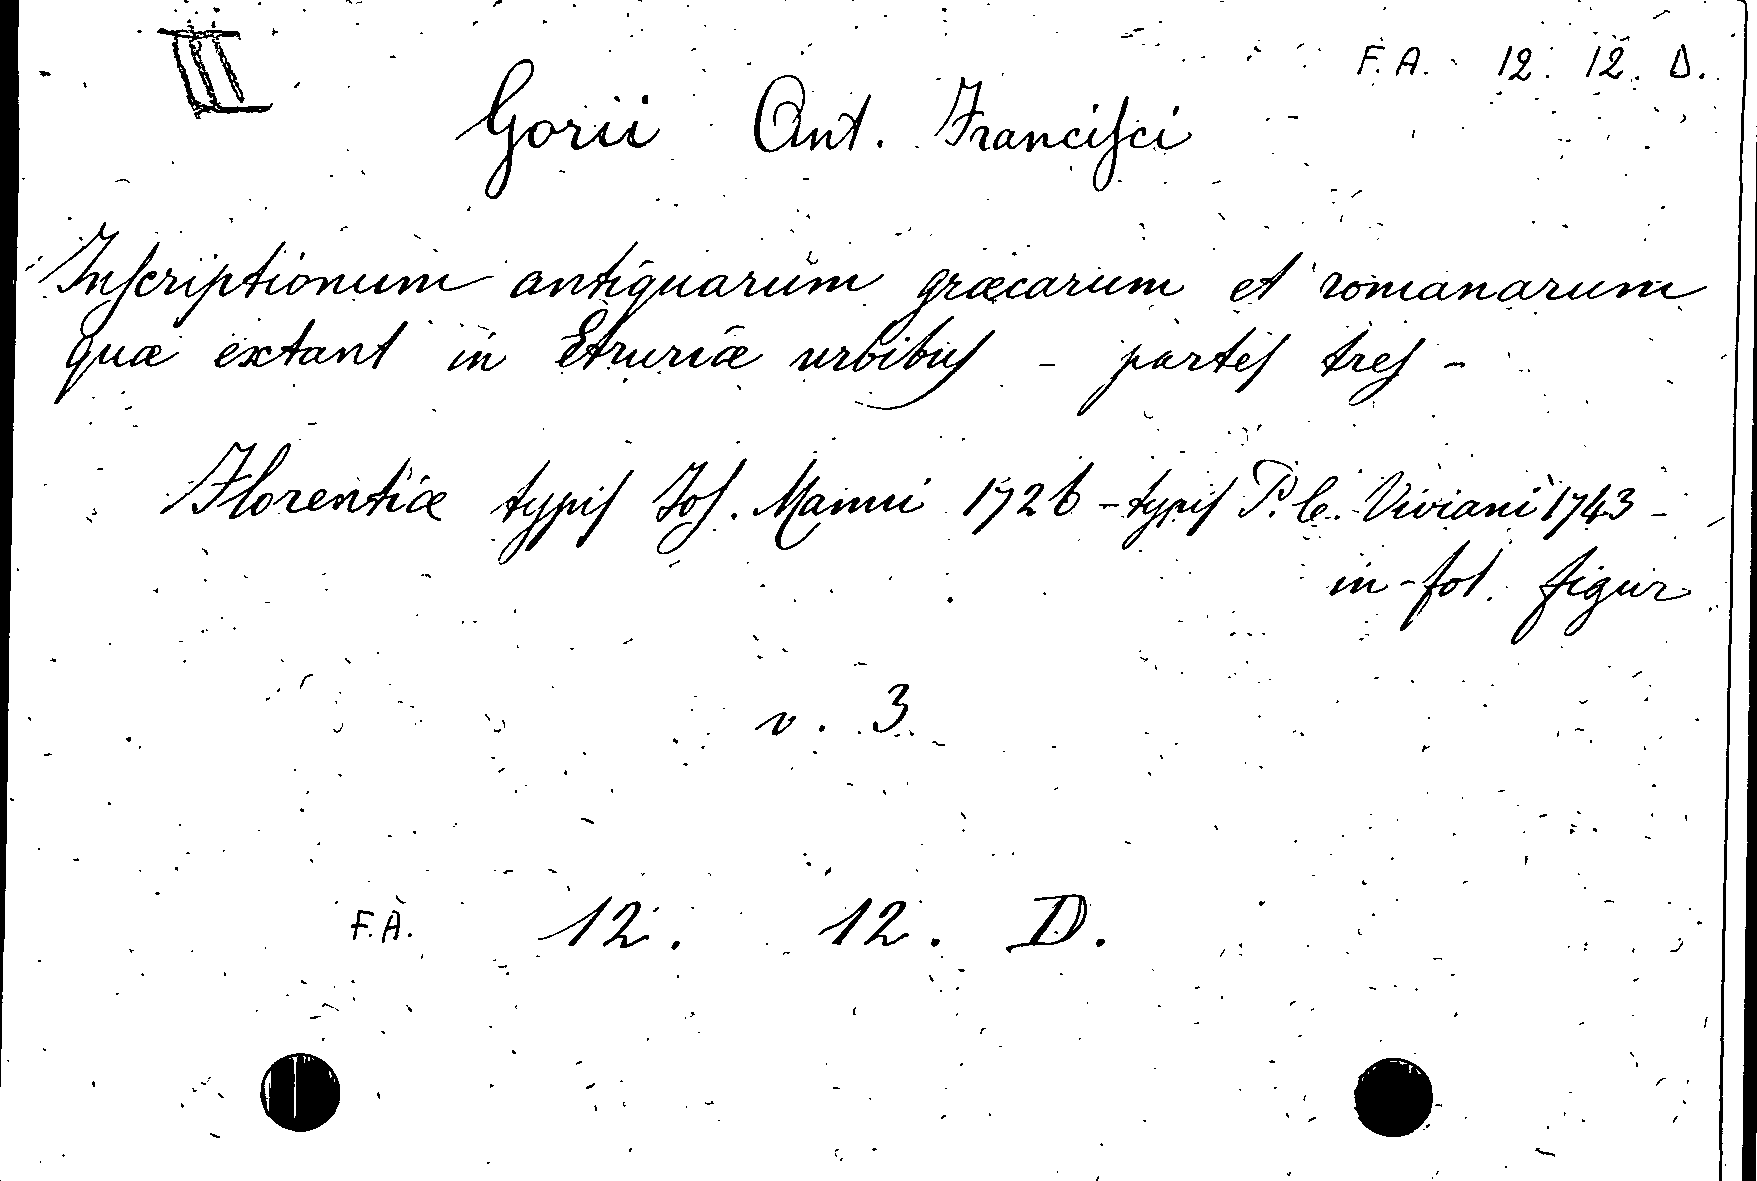 III
F. A. 12. 12. D.
Gorii Ant. Francisci
Inscriptionum antiquarum græcarum et romanarum
quæ extant in Etruriæ urbibus - partes tres -
Florentiæ typis Jos. Manni 1726 - typis P. C. Viviani 1743 -
in-fol. figur
v. 3
F. A. 12. 12. D.